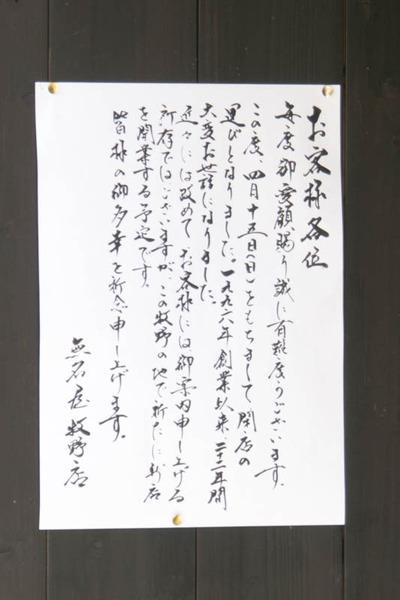 お客様各位
毎度御愛顧賜り誠に有難度うございます。
この度、四月十五日(日)をもちまして閉店の
運びとなりました。一九九六年創業以来、二十二年間
大変お世話になりました。
近々には改めて、お客様には御案内申し上げる
所存ではございますが、この牧野の地で新たに新店
を開業する予定です。
皆様の御多幸を祈念申し上げます。
無名屋 牧野店